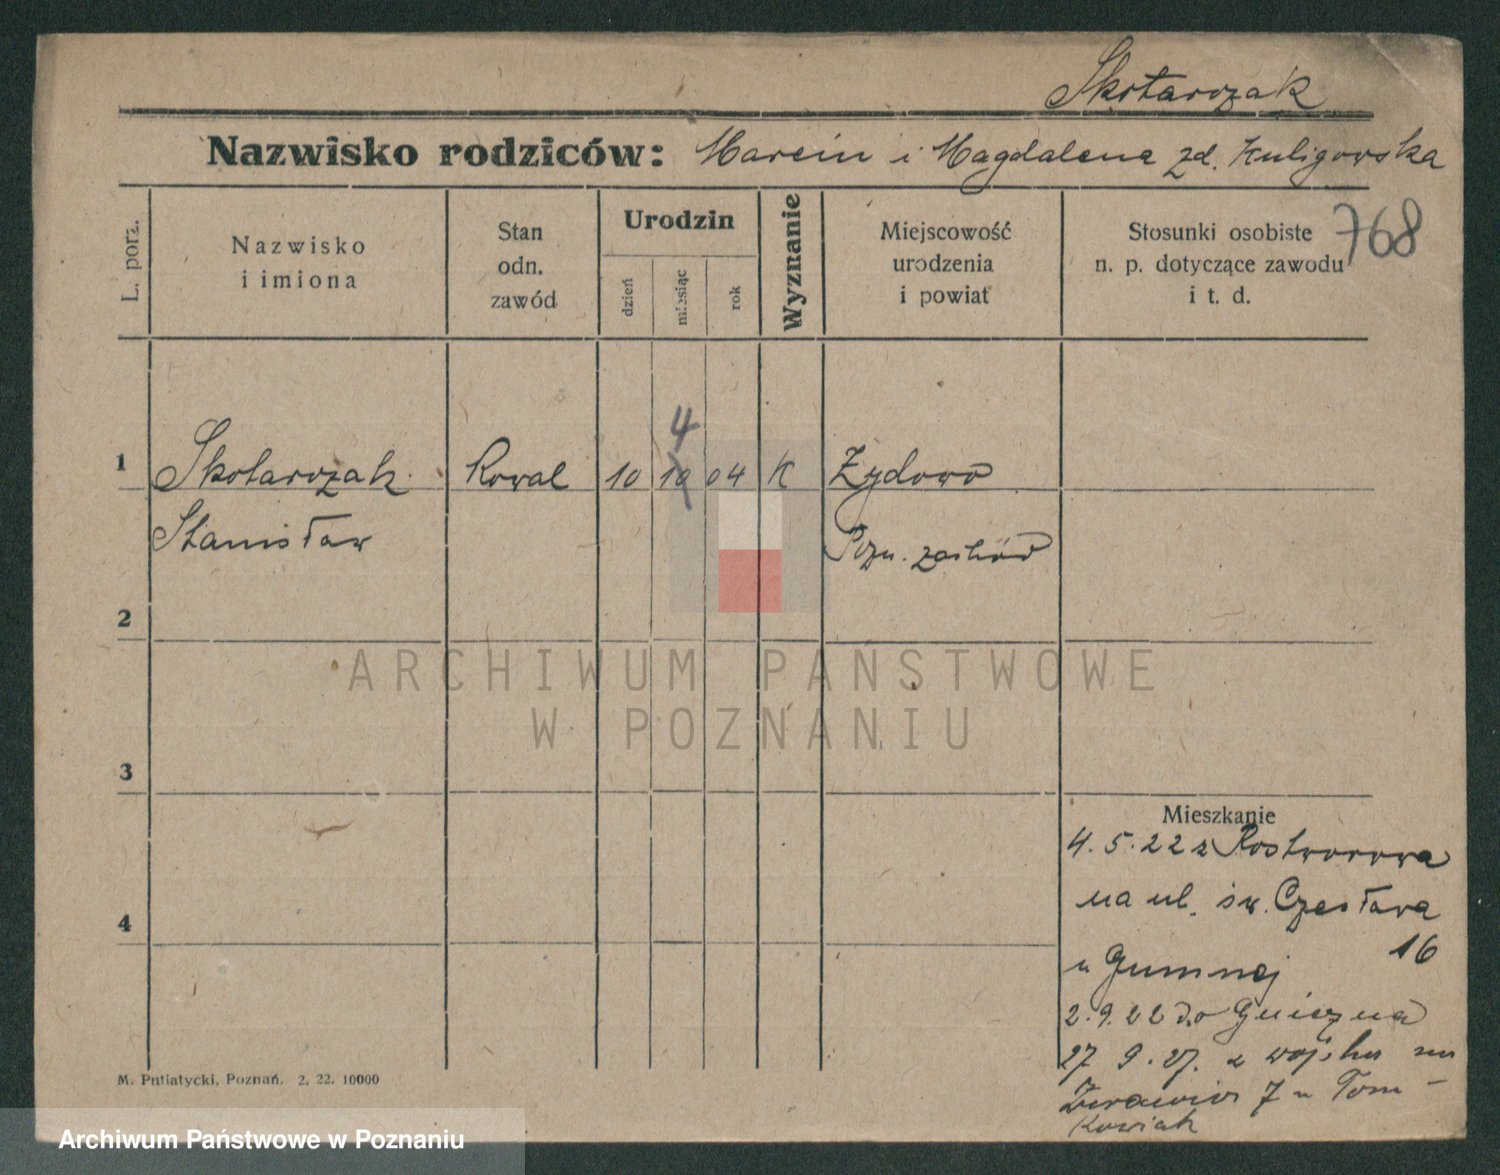 Skotarczak
Nazwisko rodziców: Marcin i Magdalena zd. Kuligowska
768
L. porz.
Nazwisko i imiona
Stan odn. zawód
Urodzin
dzień
miesiąc
rok
Wyznanie
Miejscowość urodzenia i powiat
Stosunki osobiste n. p. dotyczące zawodu i t. d.
4
1 Skotarczak Kowal 10 10 04 K Żydowo
Stanisław Pozn. zachód
2
3
4
ARCHIWUM PAŃSTWOWE
W POZNANIU
Mieszkanie
4.5.22 z Rostworowa
na ul. św. Czesława
16
u Gumnej
2.9.22 do Gniezna
27 9.27. z wojska na
Żurawia 7 u Tom-
kowiak
M. Putiatycki, Poznań. 2. 22. 10000
Archiwum Państwowe w Poznaniu